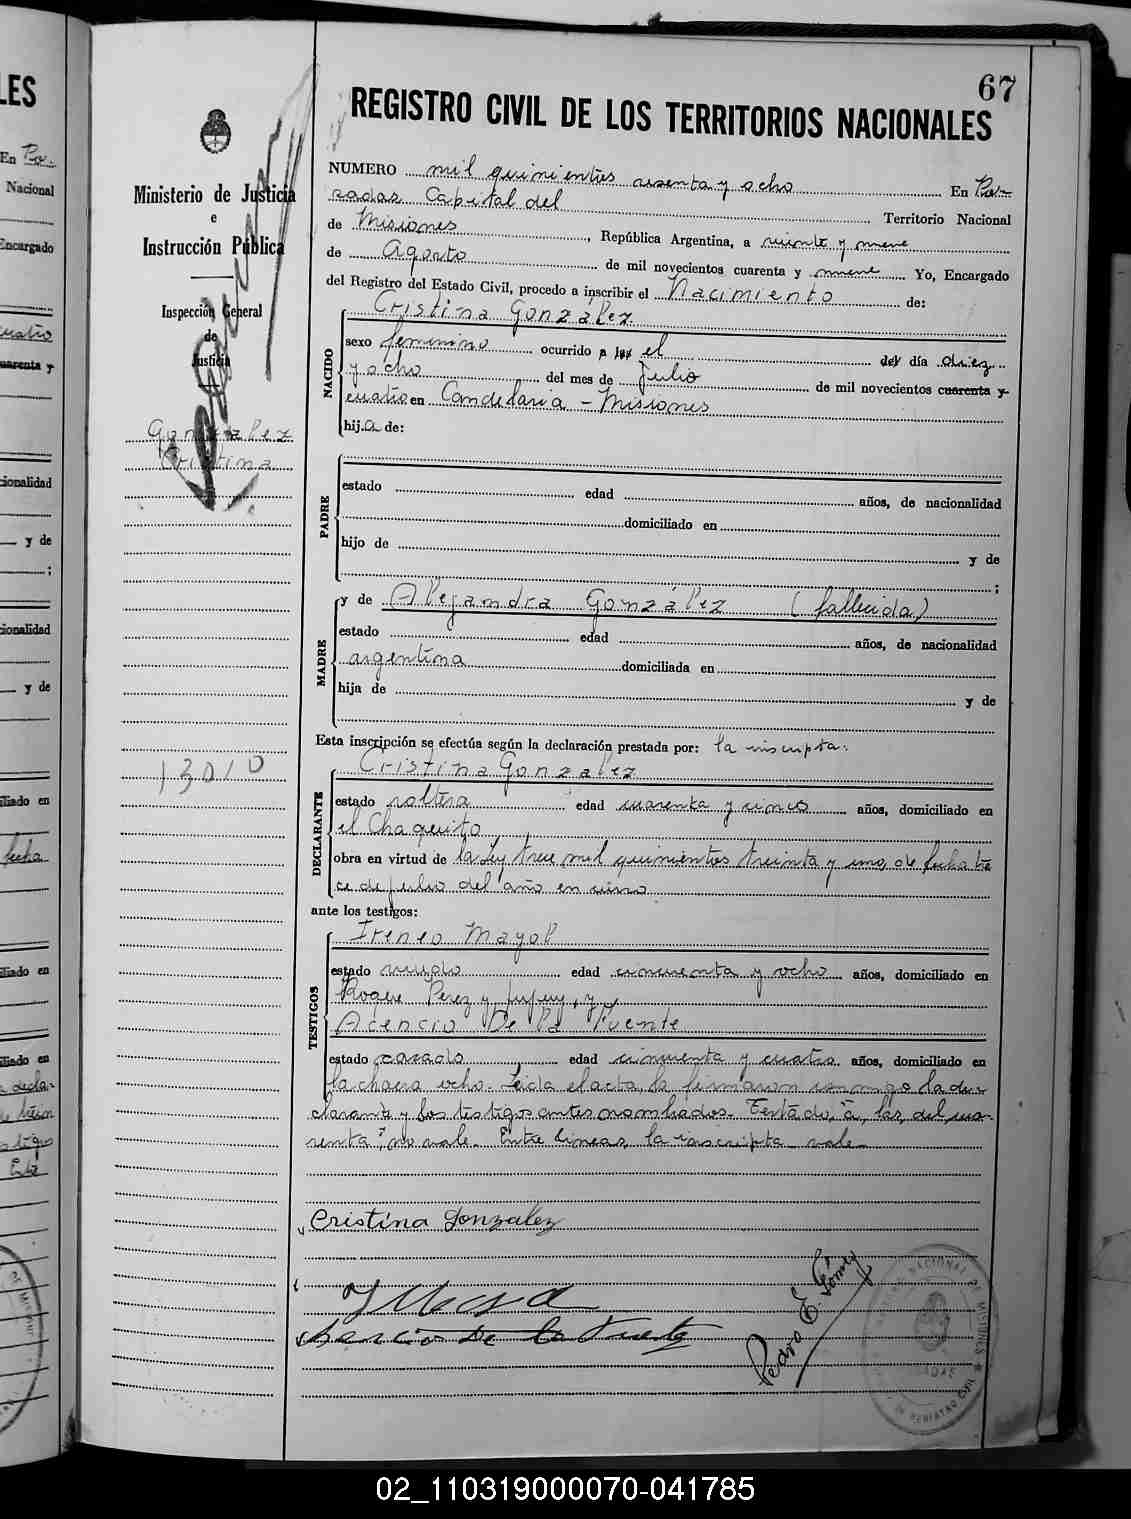 67
REGISTRO CIVIL DE LOS TERRITORIOS NACIONALES
Ministerio de Justicia
e
Instrucción Pública
Inspección General
de
Justicia
Gonzalez
Cristina
13010
NUMERO mil quinientos sesenta y ocho En Po-
sadas Capital del Territorio Nacional
de Misiones, República Argentina, a veinte y nueve
de Agosto de mil novecientos cuarenta y nueve Yo, Encargado
del Registro del Estado Civil, procedo a inscribir el Nacimiento de:
NACIDO
Cristina González
sexo femenino ocurrido a las el del día diez
y ocho del mes de Julio de mil novecientos cuarenta y
cuatro en Candelaria - Misiones
hij.a de:
PADRE
estado edad años, de nacionalidad
domiciliado en
hijo de y de
;
MADRE
y de Alejandra González (fallecida)
estado edad años, de nacionalidad
argentina domiciliada en
hija de y de
Esta inscripción se efectúa según la declaración prestada por: la inscripta:
DECLARANTE
Cristina Gonzalez
estado soltera edad cuarenta y cinco años, domiciliado en
el Chaquito
obra en virtud de la Ley trece mil quinientos treinta y uno, de fecha tre
ce de julio del año en curso
ante los testigos:
TESTIGOS
Ireneo Mayol
estado viudo edad cincuenta y ocho años, domiciliado en
Roque Perez y Jujuy, y
Acencio De la Puente
estado casado edad cincuenta y cuatro años, domiciliado en
la chacra ocho. Leida el acta, la firmaron conmigo la de-
clarante y los testigos antes nombrados. Testado, a, las, del, cua-
renta y, no vale. Entre lineas, la inscripta vale
Cristina Gonzalez
Acencio De la Puente
Pedro E. Gómez
02_110319000070-041785